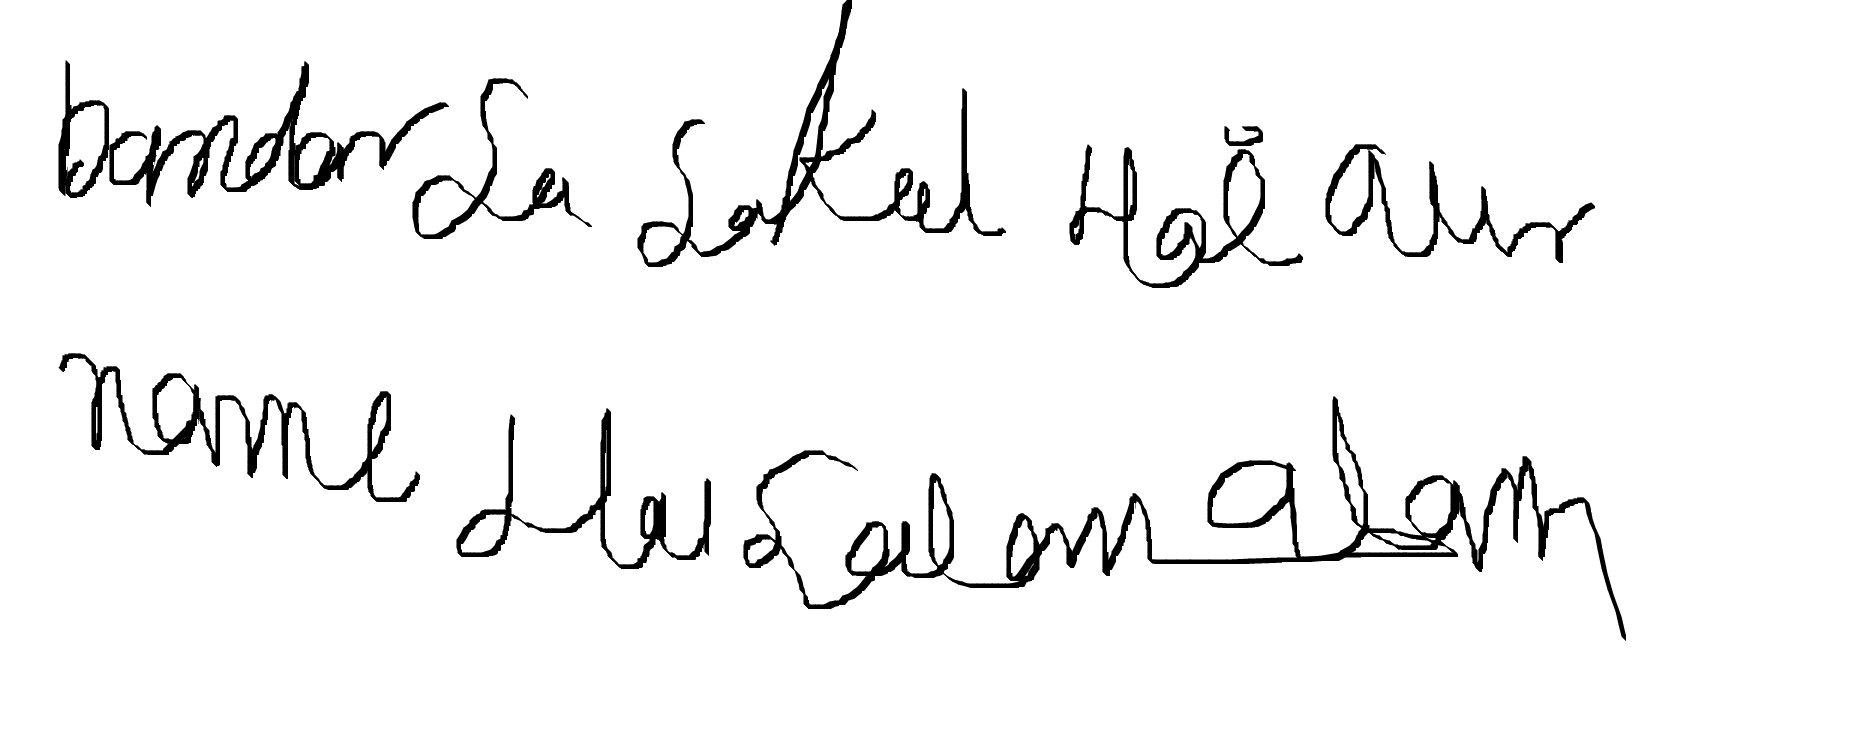 bandar Sa Sakal Hai aur
name Hai Salam alam